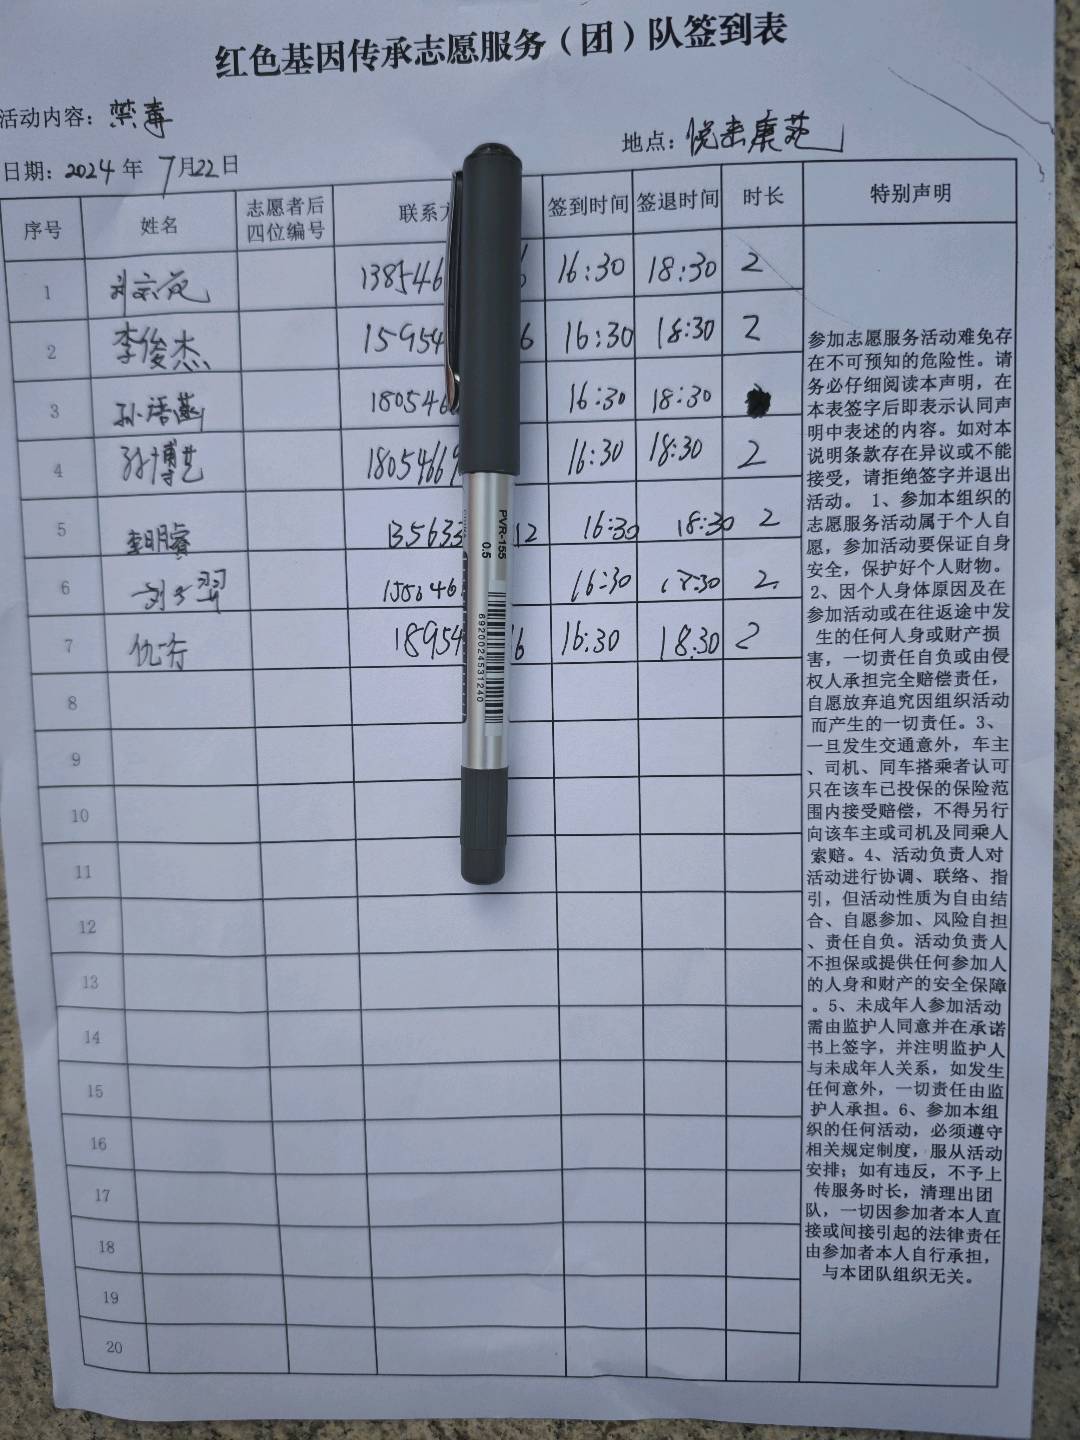 红色基因传承志愿服务（团）队签到表
活动内容：禁毒
地点：悦来康苑
日期：2024年7月22日
序号 姓名 志愿者后四位编号 联系方 签到时间 签退时间 时长 特别声明
1 138546 6 16:30 18:30 2
2 李俊杰 15954 6 16:30 18:30 2
3 孙语菡 180546 16:30 18:30
4 孙博艺 18054669 16:30 18:30 2
5 李明睿 135633 12 16:30 18:30 2
6 16:30 18:30 2
7 18954 16 16:30 18:30 2
8
9
10
11
12
13
14
15
16
17
18
19
20
参加志愿服务活动难免存
在不可预知的危险性。请
务必仔细阅读本声明，在
本表签字后即表示认同声
明中表述的内容。如对本
说明条款存在异议或不能
接受，请拒绝签字并退出
活动。 1、参加本组织的
志愿服务活动属于个人自
愿，参加活动要保证自身
安全，保护好个人财物。
2、因个人身体原因及在
参加活动或在往返途中发
生的任何人身或财产损
害，一切责任自负或由侵
权人承担完全赔偿责任，
自愿放弃追究因组织活动
而产生的一切责任。3、
一旦发生交通意外，车主
、司机、同车搭乘者认可
只在该车已投保的保险范
围内接受赔偿，不得另行
向该车主或司机及同乘人
索赔。4、活动负责人对
活动进行协调、联络、指
引，但活动性质为自由结
合、自愿参加、风险自担
、责任自负。活动负责人
不担保或提供任何参加人
的人身和财产的安全保障
。5、未成年人参加活动
需由监护人同意并在承诺
书上签字，并注明监护人
与未成年人关系，如发生
任何意外，一切责任由监
护人承担。6、参加本组
织的任何活动，必须遵守
相关规定制度，服从活动
安排；如有违反，不予上
传服务时长，清理出团
队，一切因参加者本人直
接或间接引起的法律责任
由参加者本人自行承担，
与本团队组织无关。
PVR-155
0.5
6920024531240